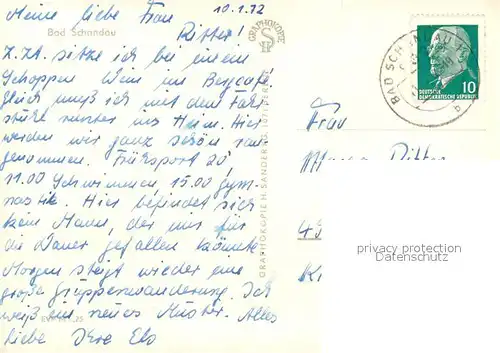 10.1.72
Meine liebe Frau
Bad Schandau
Ritter!
Z. Zt. sitze ich bei einem
Schoppen Wein im Bergcafé
gleich muß ich mit dem Fahr-
stuhl runter ins Heim. Hier
werden wir ganz schön ran-
genommen. Frühsport 20',
11.00 Schwimmen, 15.00 Gym-
nastik. Hier befindet sich
kein Mann, der mir für
die Dauer gefallen könnte
Morgen steigt wieder eine
große Gruppenwanderung. Ich
weiß ein neues Muster. Alles
liebe Ihre
GRAPHOKOPIE
GRAPHOKOPIE H. SANDER KG
BAD SCHANDAU
b
10
DEUTSCHE
DEMOKRATISCHE REPUBLIK
Frau
Ritter
privacy protection
Datenschutz